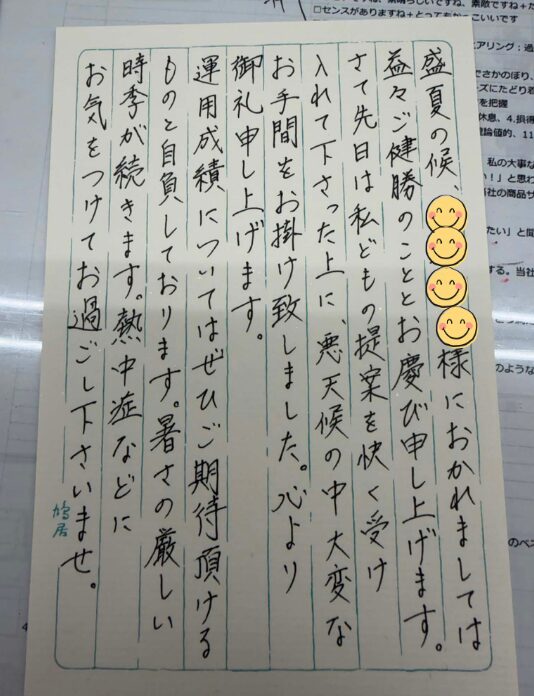 盛夏の候、様におかれましては
益々ご健勝のこととお慶び申し上げます。
さて先日は私どもの提案を快く受け
入れて下さった上に、悪天候の中大変な
お手間をお掛け致しました。心より
御礼申し上げます。
運用成績についてはぜひご期待頂ける
ものと自負しております。暑さの厳しい
時季が続きます。熱中症などに
お気をつけてお過ごし下さいませ。
鳩居
□センスがありますね+とってもかっこいいです